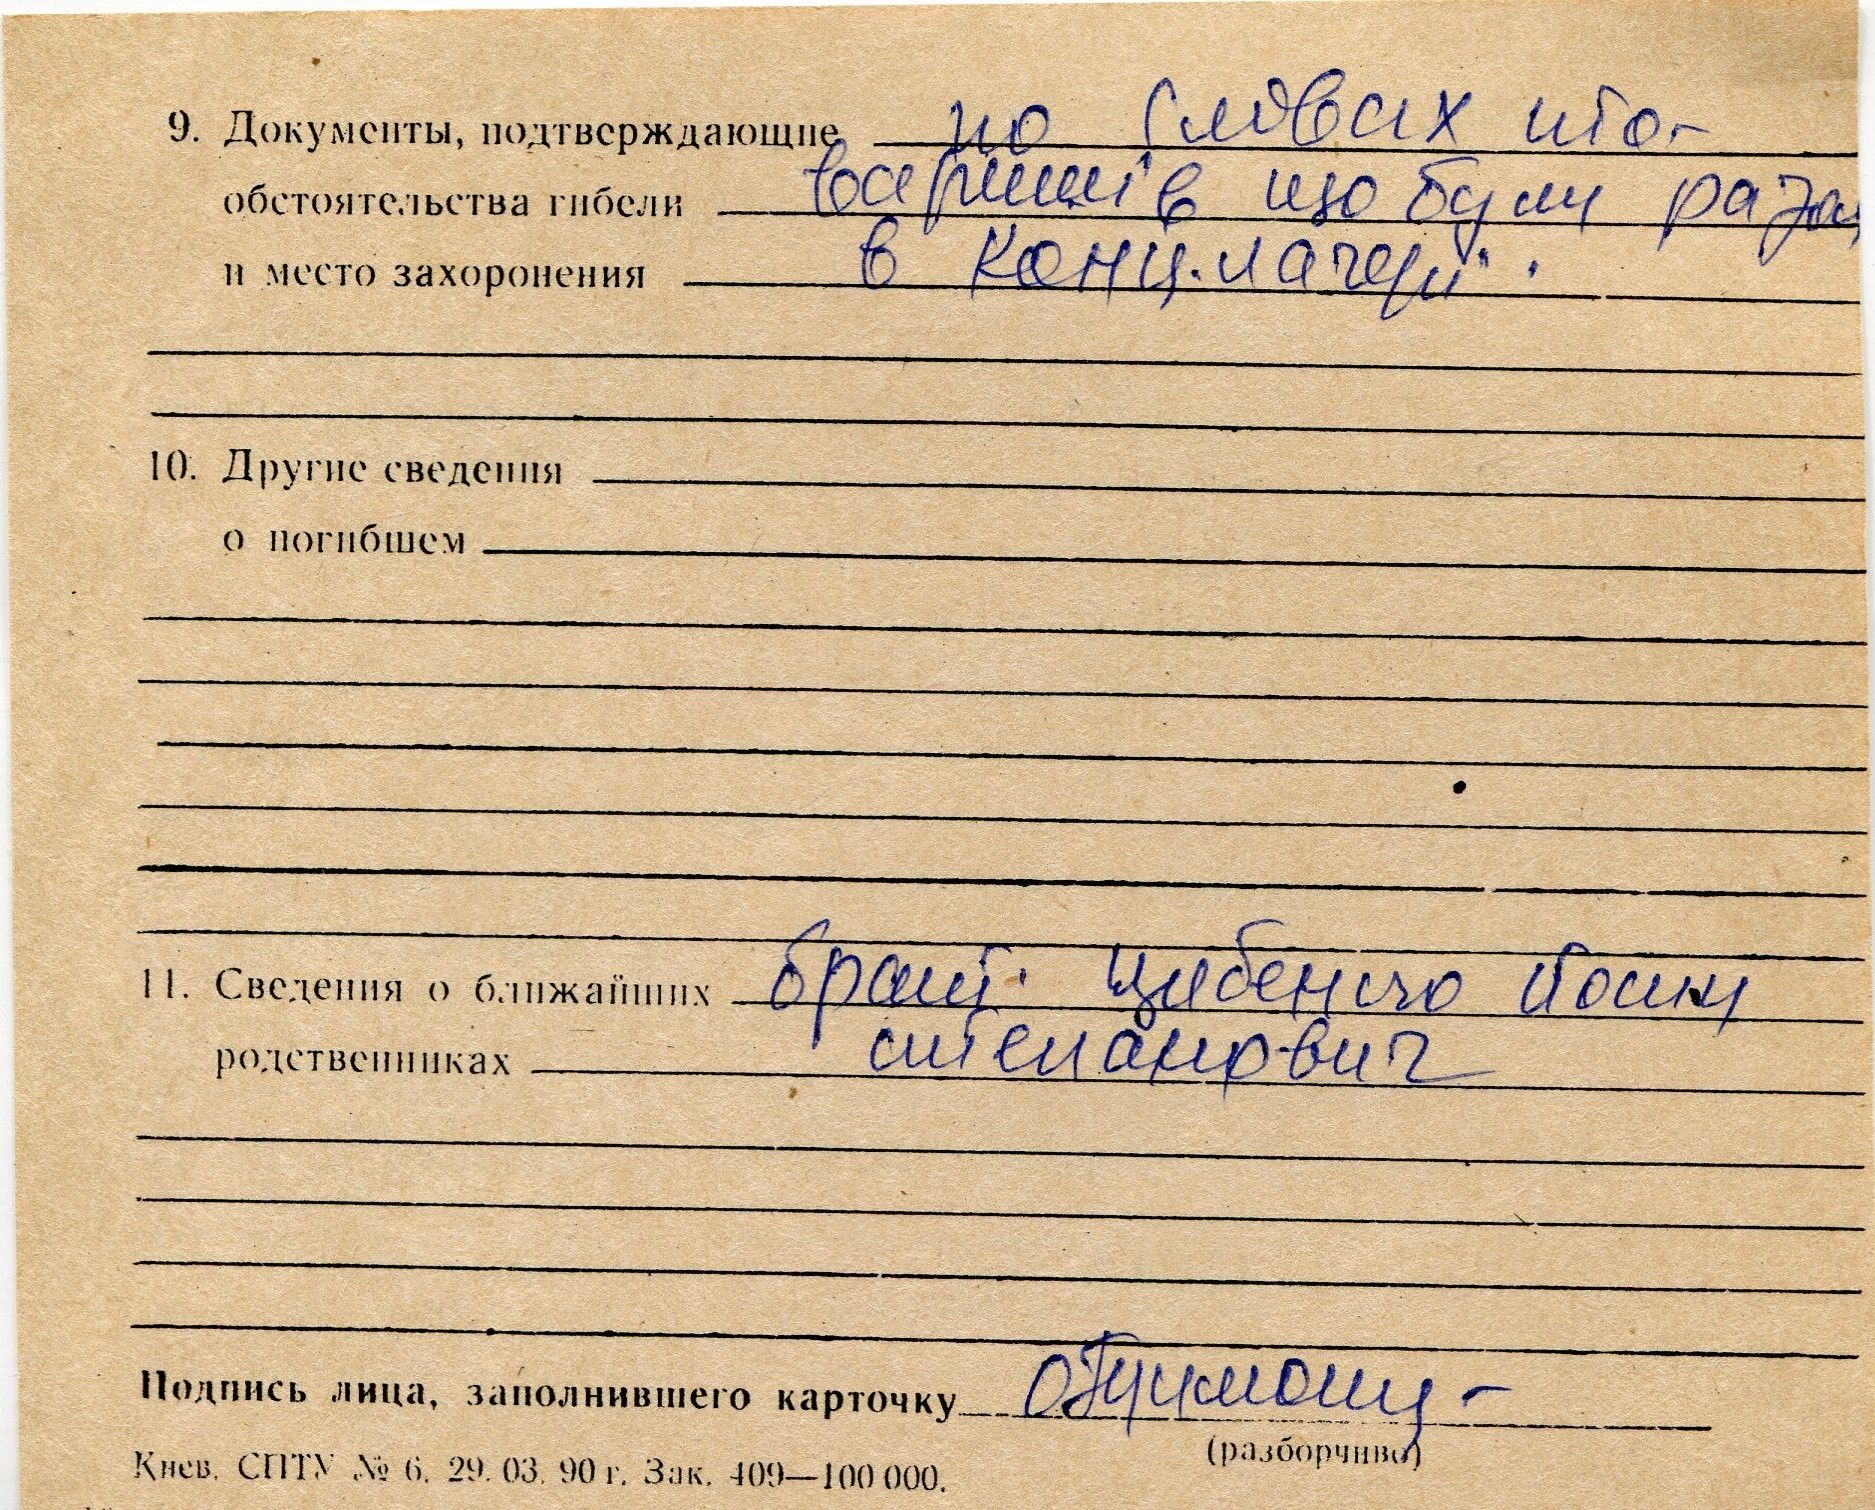 9. Документы, подтверждающие по словах то-
обстоятельства гибели варишів що були разом
и место захоронения в концлагері.
10. Другие сведения
о погибшем
11. Сведения о ближайших брат. Цибенко
родственниках степанович
Подпись лица, заполнившего карточку
(разборчиво)
Киев. СПТУ № 6. 29. 03. 90 г. Зак. 409—100 000.